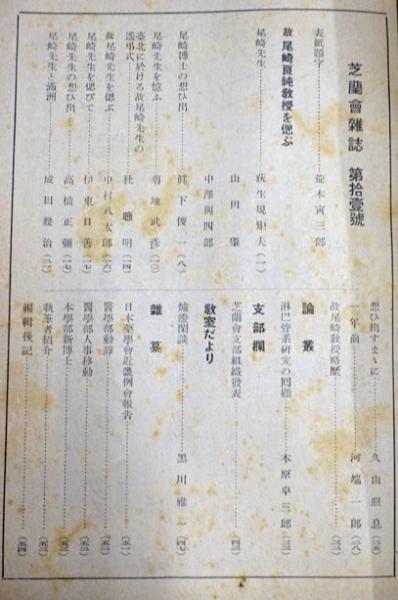 芝蘭會雜誌 第拾壹號
表紙題字 荒木寅三郎
故尾崎良純教授を偲ぶ
尾崎先生 荻生規矩夫(一)
山田肇
中澤與四郎
尾崎博士の想ひ出 眞下俊一(八)
尾崎先生を憶ふ 菊地武彦(一〇)
臺北に於ける故尾崎先生の
追弔式 杜聰明(一四)
故尾崎先生を偲ぶ 中村八太郎(一六)
尾崎先生を偲びて 伊東日善(一七)
尾崎先生の想ひ出 高橋正彌(一七)
尾崎先生と滿洲 成田幾治(二一)
想ひ出すまゝに 久山照息(二五)
一年前 河端一郎(二八)
故尾崎教授略歷
論叢
淋巴管系研究の回顧 木原卓三郎(三三)
支部欄
芝蘭會支部組織發表(四三)
教室だより
爐邊閑談 黑川雅一(四七)
雜纂
日本藥學會近畿例會報告(五一)
醫學部動靜(五二)
醫學部人事移動(五二)
本學部新博士(五三)
執筆者紹介(五三)
編輯後記(五四)